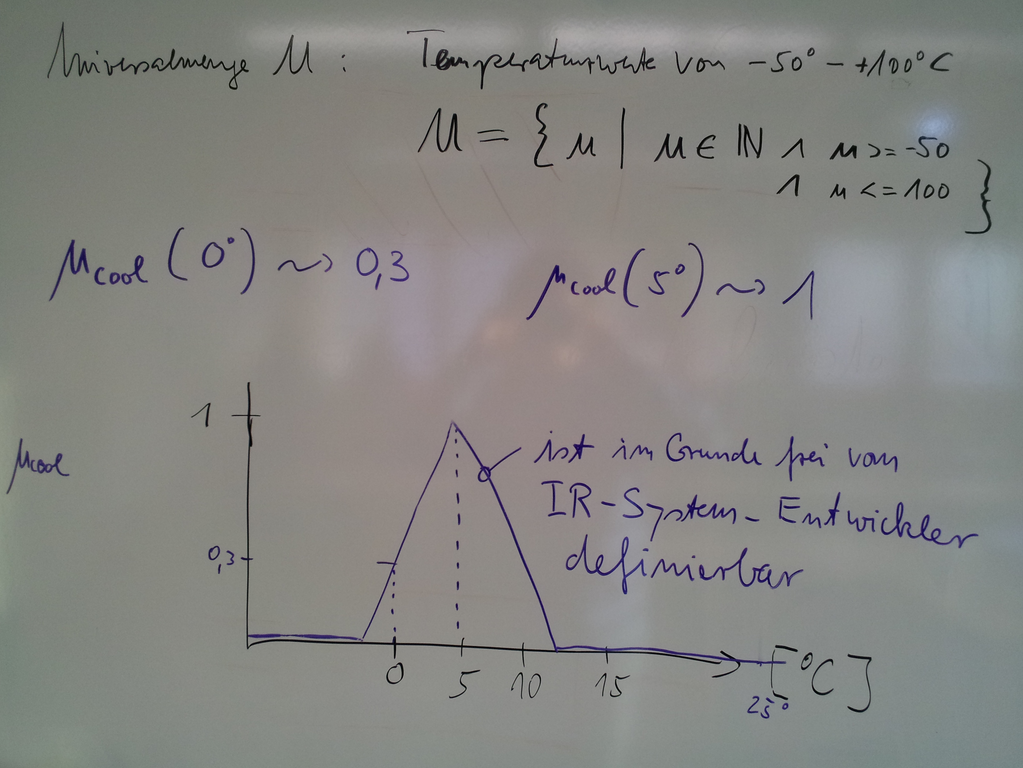 Universalmenge U : Temperaturwerte von -50° - +100°C
U = { u | u ∈ ℕ ∧ u >= -50
∧ u <= 100 }
μcool (0°) ⇝ 0,3 μcool (5°) ⇝ 1
1
μcool
ist im Grunde frei vom
IR-System-Entwickler
definierbar
0,3
0 5 10 15 [°C]
25°